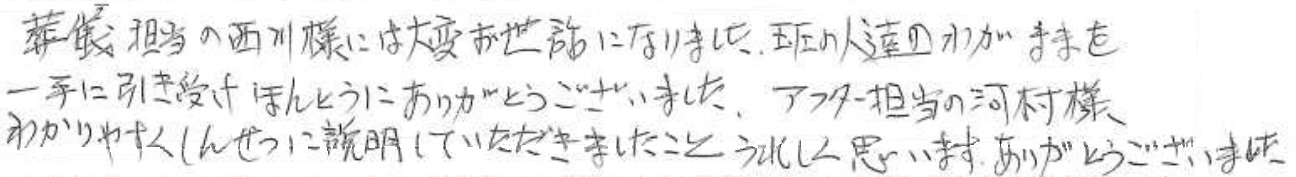 葬儀担当の西川様には大変お世話になりました。班の人達のわがままを
一手に引き受けほんとうにありがとうございました、アフター担当の河村様、
わかりやすくしんせつに説明していただきましたことうれしく思います。ありがとうございました